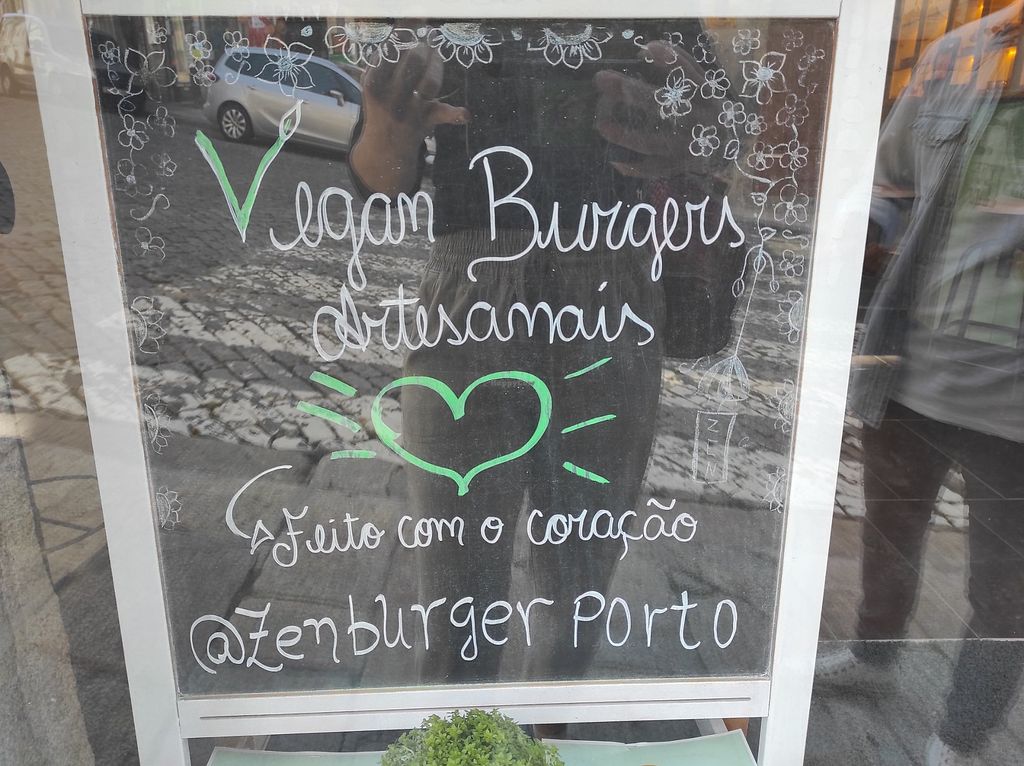 Vegan Burgers
Artesanais
Feito com o coração
@Zenburger Porto
ZEN